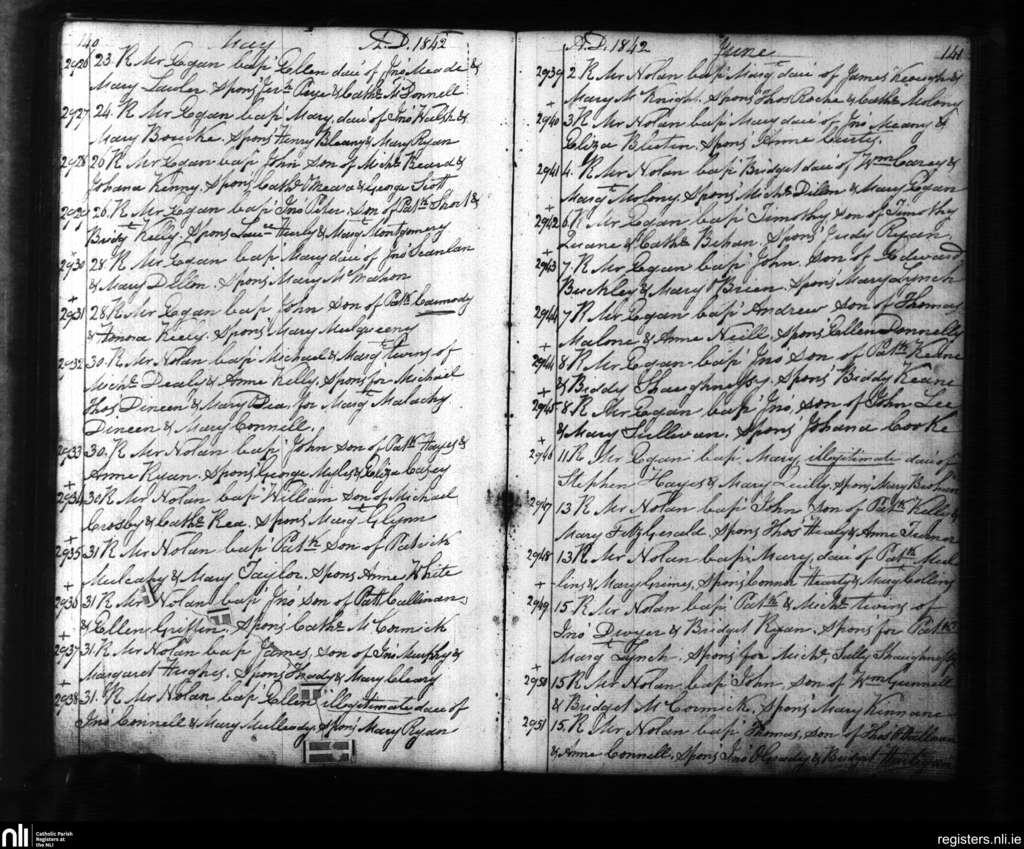 140 May A.D. 1842
2926 23. R Mr Egan bap' Ellen dau of Jno Meade &
Mary Lawler. Spons Jer. & Cath. McDonnell
2927 24. R Mr Egan bap' Mary, dau of Jno Walsh &
Mary Bourke. Spons Henry & Mary Ryan
2928 26. R Mr Egan bap' John son of Mich. &
Johana Kenny. Spons Cath. Meara & George Scott
2929 26. R Mr Egan bap' Jno Peter, son of Patk Short &
Biddy Kelly. Spons & Mary Montgomery
2930 28. R Mr Egan bap' Mary dau of Jno Scanlan
& Mary Dillon. Spons Mary McMahon
2931 28. R Mr Egan bap' John son of Patk Carmody
& Honora Kelly. Spons Mary Mulqueeny
2932 30. R Mr Nolan bap' Michael & Margt twins of
Mich. Dealy & Anne Kelly. Spons for Michael
Thos Dineen & Mary Dea, for Margt Malachy
Dineen & Mary Connell.
2933 30. R Mr Nolan bap' John son of Patk Hayes &
Anne Ryan. Spons George Myles & Eliza Casey
2934 30 R Mr Nolan bap' William son of Michael
Crosby & Cath. Rea. Spons Margt Glynn
2935 31 R Mr Nolan bap' Patk son of Patrick
Mulcahy & Mary Taylor. Spons Anne White
2936 31 R Mr Nolan bap' Jno son of Patt Callinan,
& Ellen Griffin, Spons Cath. McCormick
2937 31. R Mr Nolan bap' James, son of Jno Murphy &
Margaret Hughes. Spons Thady & Mary Cleary
2938 31. R Mr Nolan bap' Ellen illegitimate dau of
Jno Connell & Mary Mulleady, Spons Mary Ryan
A.D. 1842 June 141
2939 2 R Mr Nolan bap' Margt dau of James Keough &
Mary McKnight. Spons Thos Roche & Cath. Molony
2940 3. R Mr Nolan bap' Mary dau of Jno Meany &
Eliza. Spons Anne Curtis.
2941 4. R Mr Nolan bap' Bridget dau of Wm Carey &
Margt Molony. Spons Mich. Dilon & Mary Egan
2942 6 R Mr Egan bap' Timothy son of Timothy
& Cath. Behan. Spons Judy Ryan
2943 7. R Mr Egan bap' John, son of Edward
Buckley & Mary O'Brien. Spons Mary Lynch
2944 7 R Mr Egan bap' Andrew son of Thomas
Malone & Anne Neill. Spons Ellen Donnelly
2944 8 R Mr Egan bap' Jno son of Patk
& Biddy Shaughnessy. Spons Biddy Keane
2945 8 R Mr Egan bap' Jno, son of John Lee
& Mary Sullivan. Spons Johana Cooke
2946 11. R Mr Egan bap' Mary illegitimate dau of
Stephen Hayes & Mary, Spons Mary
2947 13 R Mr Nolan bap' John son of Patk Kelly &
Mary FitzGerald. Spons Thos Healy & Anne
2948 13 R Mr Nolan bap' Mary dau of Patk Mul
lins & Mary Grimes, Spons Connor & Mary Collins
2949 15. R Mr Nolan bap' Patk & Mich. twins of
Jno Dwyer & Bridget Ryan. Spons for Patk
Margt Lynch. Spons for Mich., Shaughnessy
2950 15 R Mr Nolan bap' John, son of Wm
& Bridget McCormick, Spons Mary Kinnane
2951 15. R Mr Nolan bap' Thomas, son of Thos O'Sullivan
& Anne Connell. Spons Jno & Bridget
nli Catholic Parish
Registers at
the NLI
registers.nli.ie